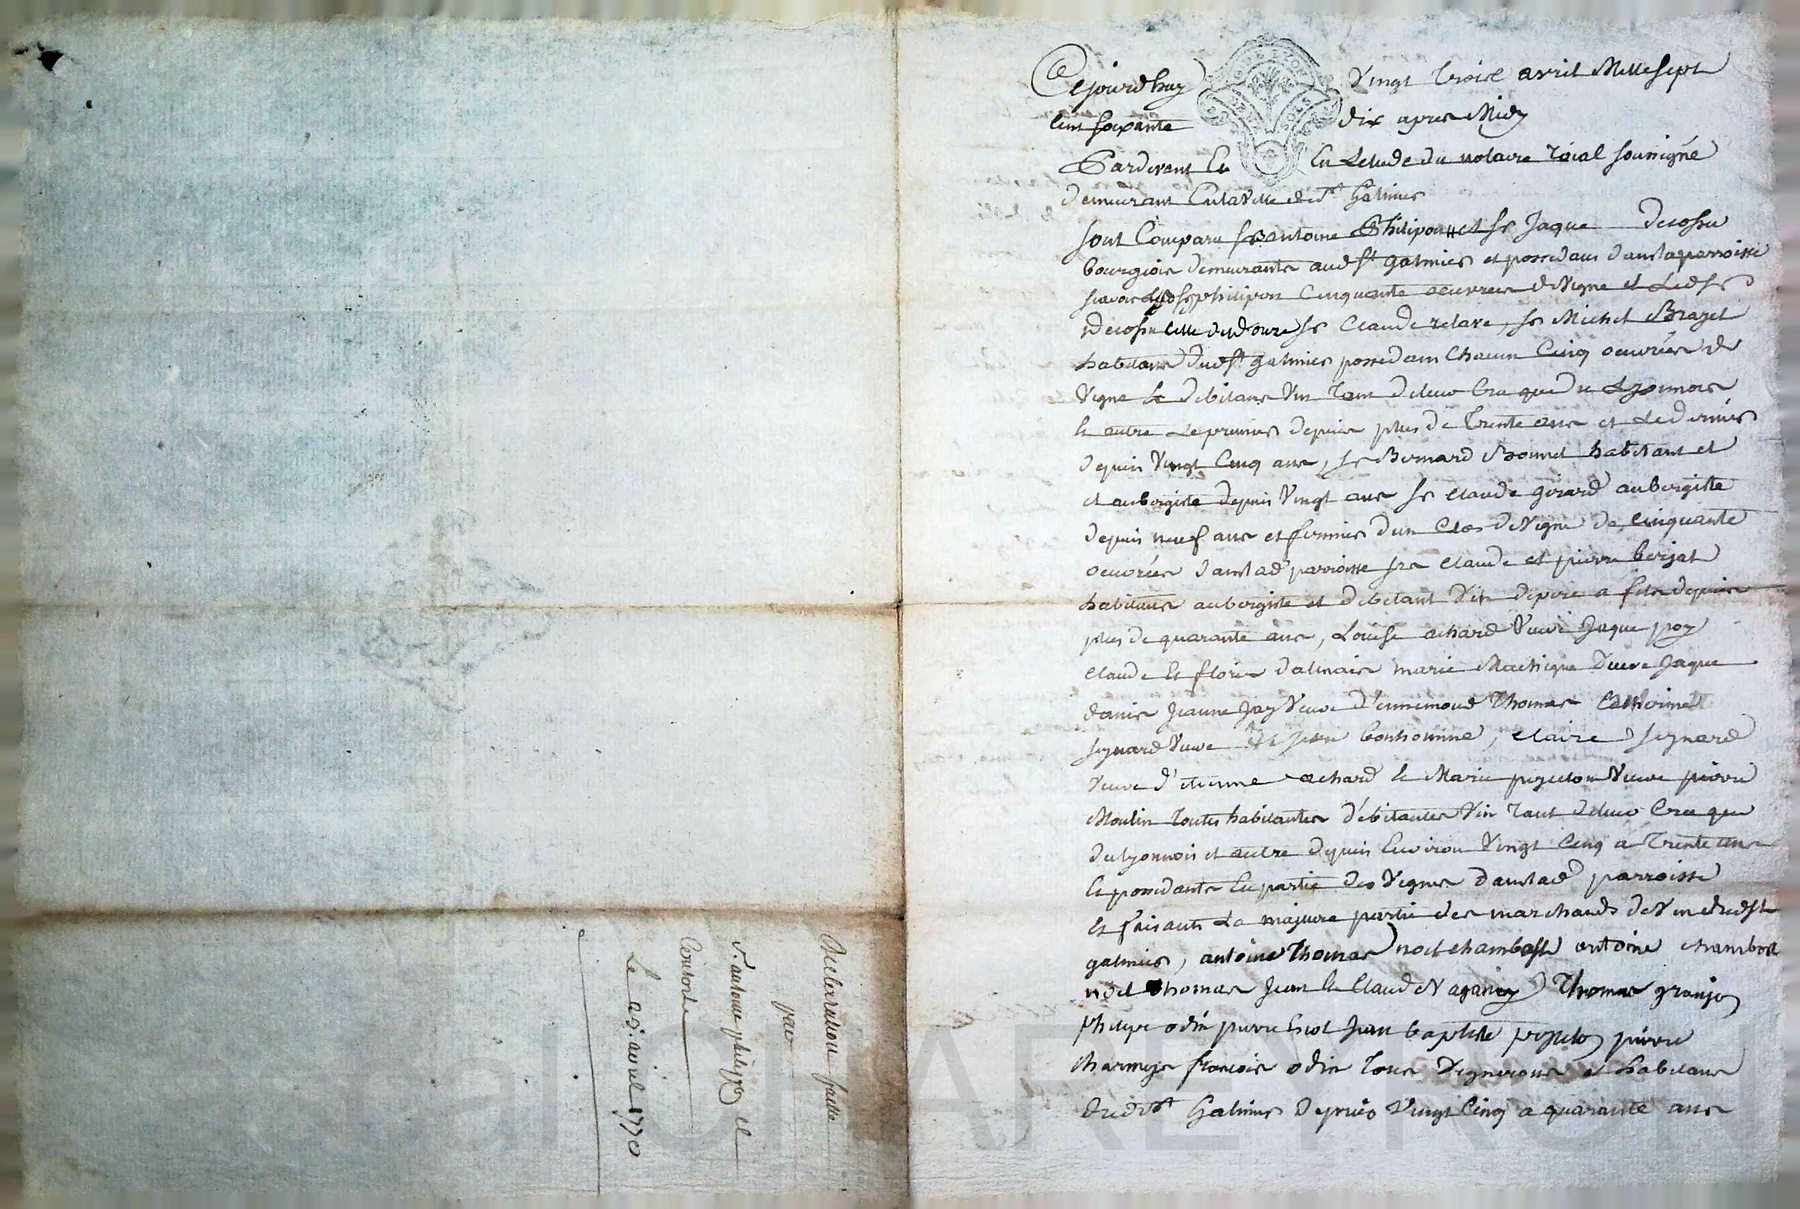 Cejourdhuy vingt troise avril Mille sept
cent soixante dix apres Midy
Pardevant et En Letude du notaire roial soussigné
demeurant en la ville de St Galmier
sont Comparu sr antoine Philipon et sr Jaque
bourgeois demeurants aud st galmier et possedans dans la parroisse
philipon Cinquante oeuvrees de Vigne et Led sr
sr Claude relave, sr Michel Brazet
habitans dud st galmier possedans Chacun Cinq oeuvrées de
Vigne et debitans Vin tant de leur Cru que du Lyonnois
et autre Le premier depuis plus de Trente ans et Le dernier
depuis Vingt Cinq ans, sr Bernard Bonnet habitant et
et aubergiste depuis Vingt ans sr Claude girard aubergiste
depuis neuf ans et fermier dun Clos de Vigne de Cinquante
oeuvrées dans lad parroisse srs Claude et pierre berjat
habitans aubergiste et debitant Vin de pere a fils depuis
plus de quarante ans, Louise achard Veuve Jaque poy
Claude et fleurie dalmais marie Veuve Jaque
Jeanne Jay Veuve d'ennemond Thomas Catherine
signard Veuve de jean bonhomme, Claire signard
Veuve d'étienne achard et Marie Veuve pierre
Moulin toutes habitantes débitantes Vin tant de leur Cru que
du lyonnois et autre depuis Environ Vingt Cinq a Trente ans
et possedants En partie des Vignes dans lad parroisse
et faisants La majeure partie des marchands de Vin dud st
galmier, antoine Thomas noel chambost antoine chambost
noel thomas Jean et Claude Thomas granjon
philipe odin pierre Jean baptiste pierre
francois odin tous Vignerons et habitans
dud st Galmier depuis Vingt Cinq a quarante ans
Declaration faitte
par
sr antoine philipon et
Consorts
Le 23 avril 1770
CHAREYRON